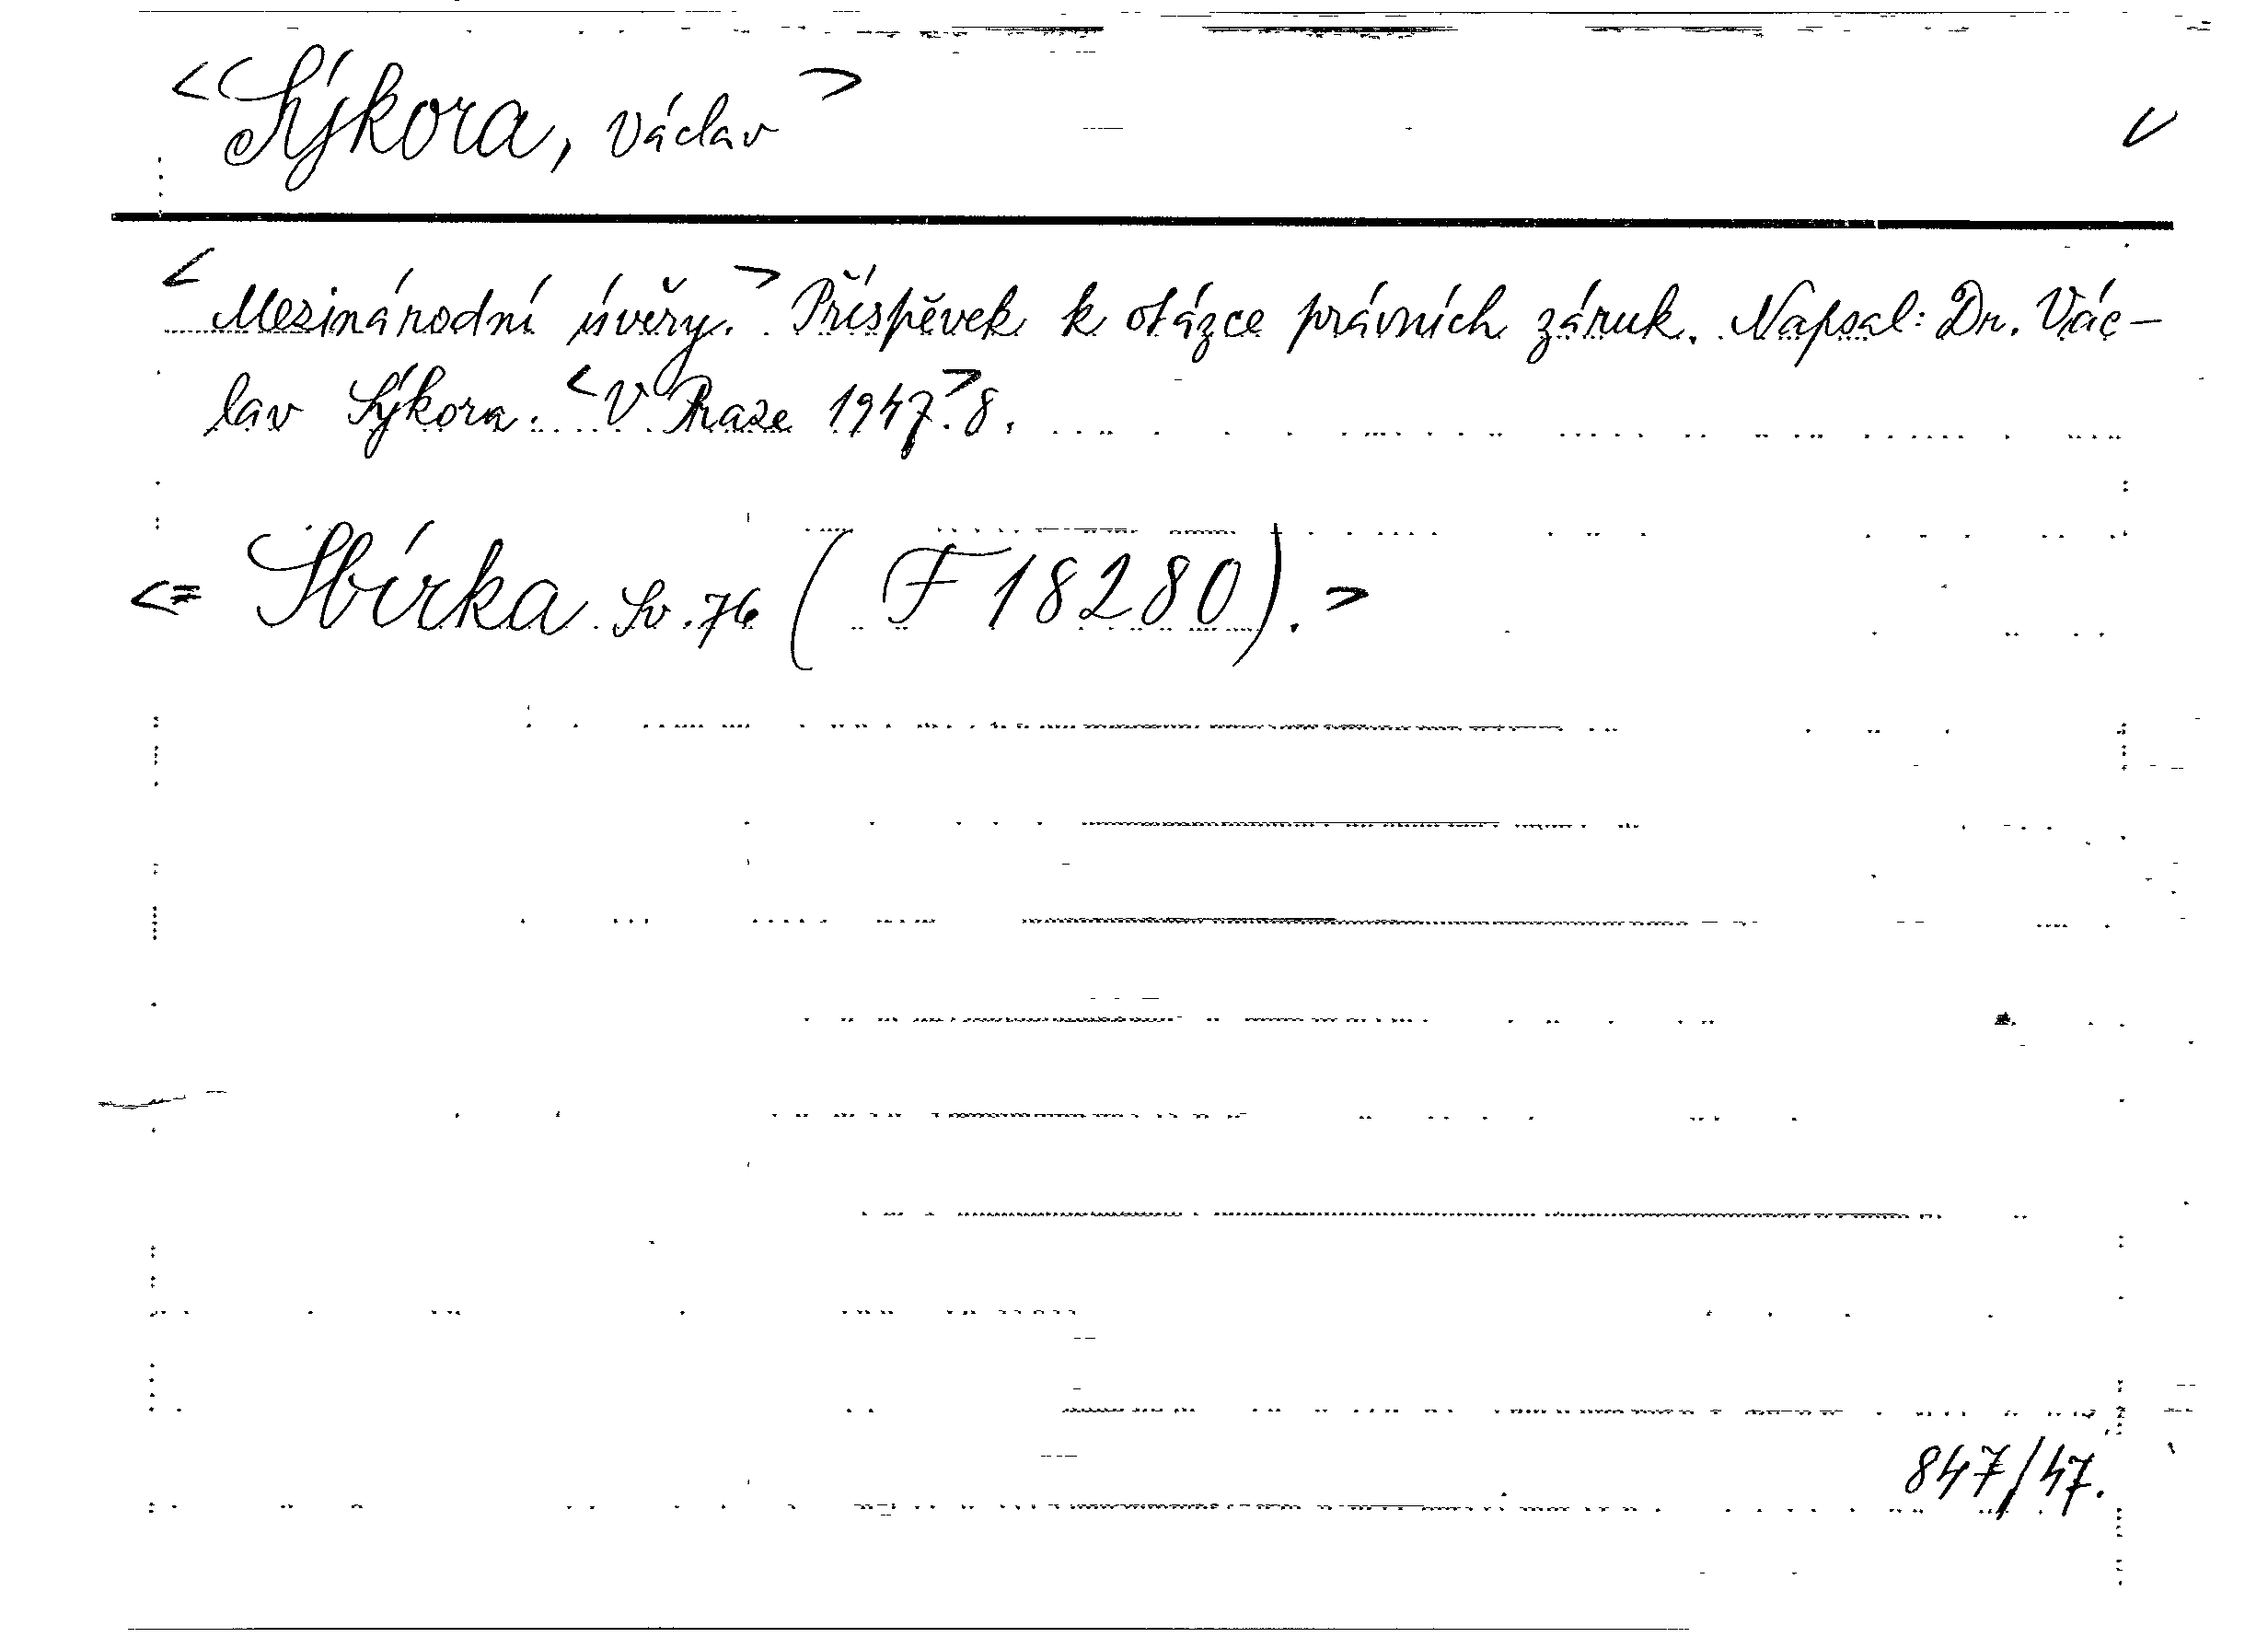 <Sýkora, Václav> V
<Mezinárodní úvěry.> Příspěvek k otázce právních záruk. Napsal: Dr. Vác-
lav Sýkora. <V Praze 1947.> 8.
<= Sbírka Sv. 76 (F 18280).>
847/47.